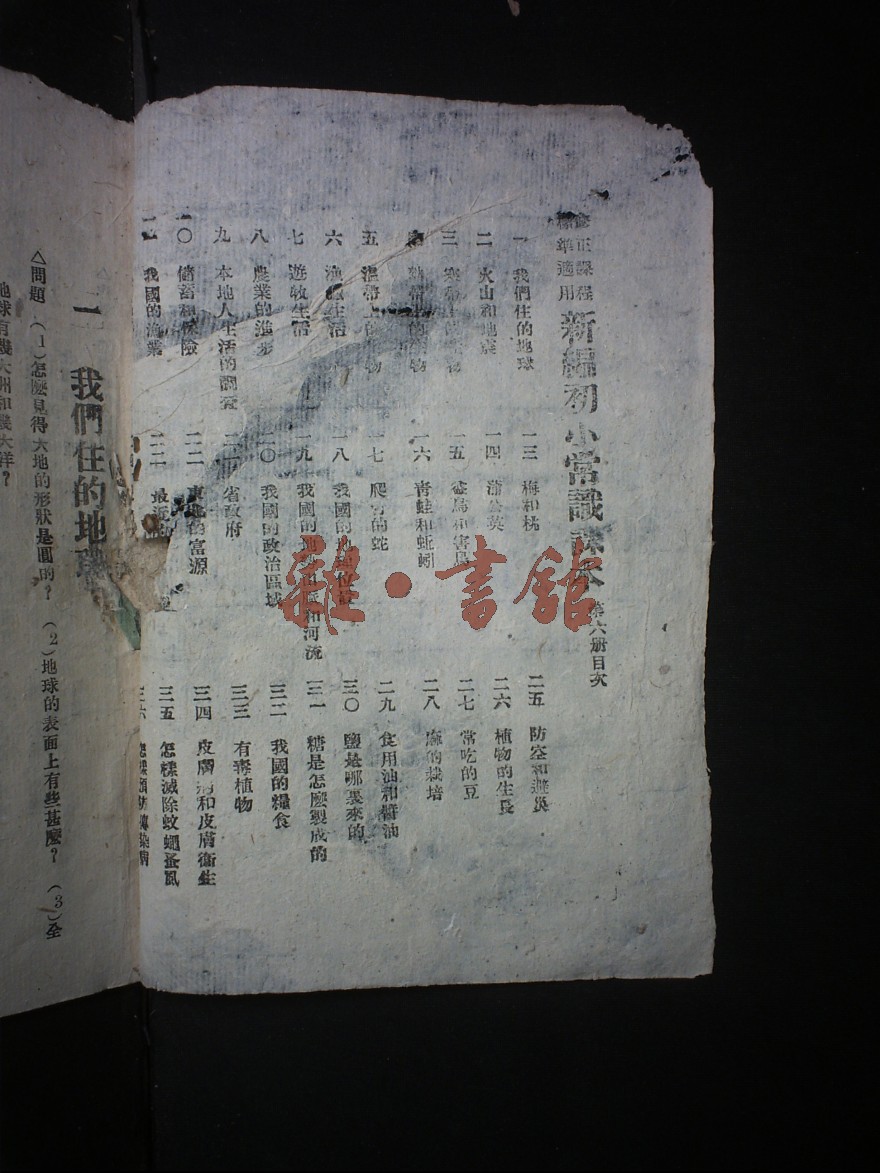 修正課程
標準適用
新編初小常識課本 第六册目次
一 我們住的地球
二 火山和地震
三 寒帶
五 溫帶上的 物
六 漁獵生活
七 遊牧生活
八 農業的進步
九 本地人生活的調查
一〇 儲蓄和保險
我國的漁業
一三 梅和桃
一四 蒲公英
一五 益鳥和害鳥
一六 青蛙和蚯蚓
一七 爬行的蛇
一八 我國的地
一九 我國的 和河流
二〇 我國的政治區域
二一 省政府
二二 東北的富源
最近
二五 防空和避災
二六 植物的生長
二七 常吃的豆
二八 麻的栽培
二九 食用油和醬油
三〇 鹽是哪裏來的
三一 糖是怎麼製成的
三二 我國的糧食
三三 有毒植物
三四 皮膚病和皮膚衛生
三五 怎樣滅除蚊蠅蚤虱
三六 怎樣預防傳染病
一 我們住的地球
△問題 (1)怎麼見得大地的形狀是圓的？ (2)地球的表面上有些甚麼？ (3)全
地球有幾大洲和幾大洋？
雜·書館